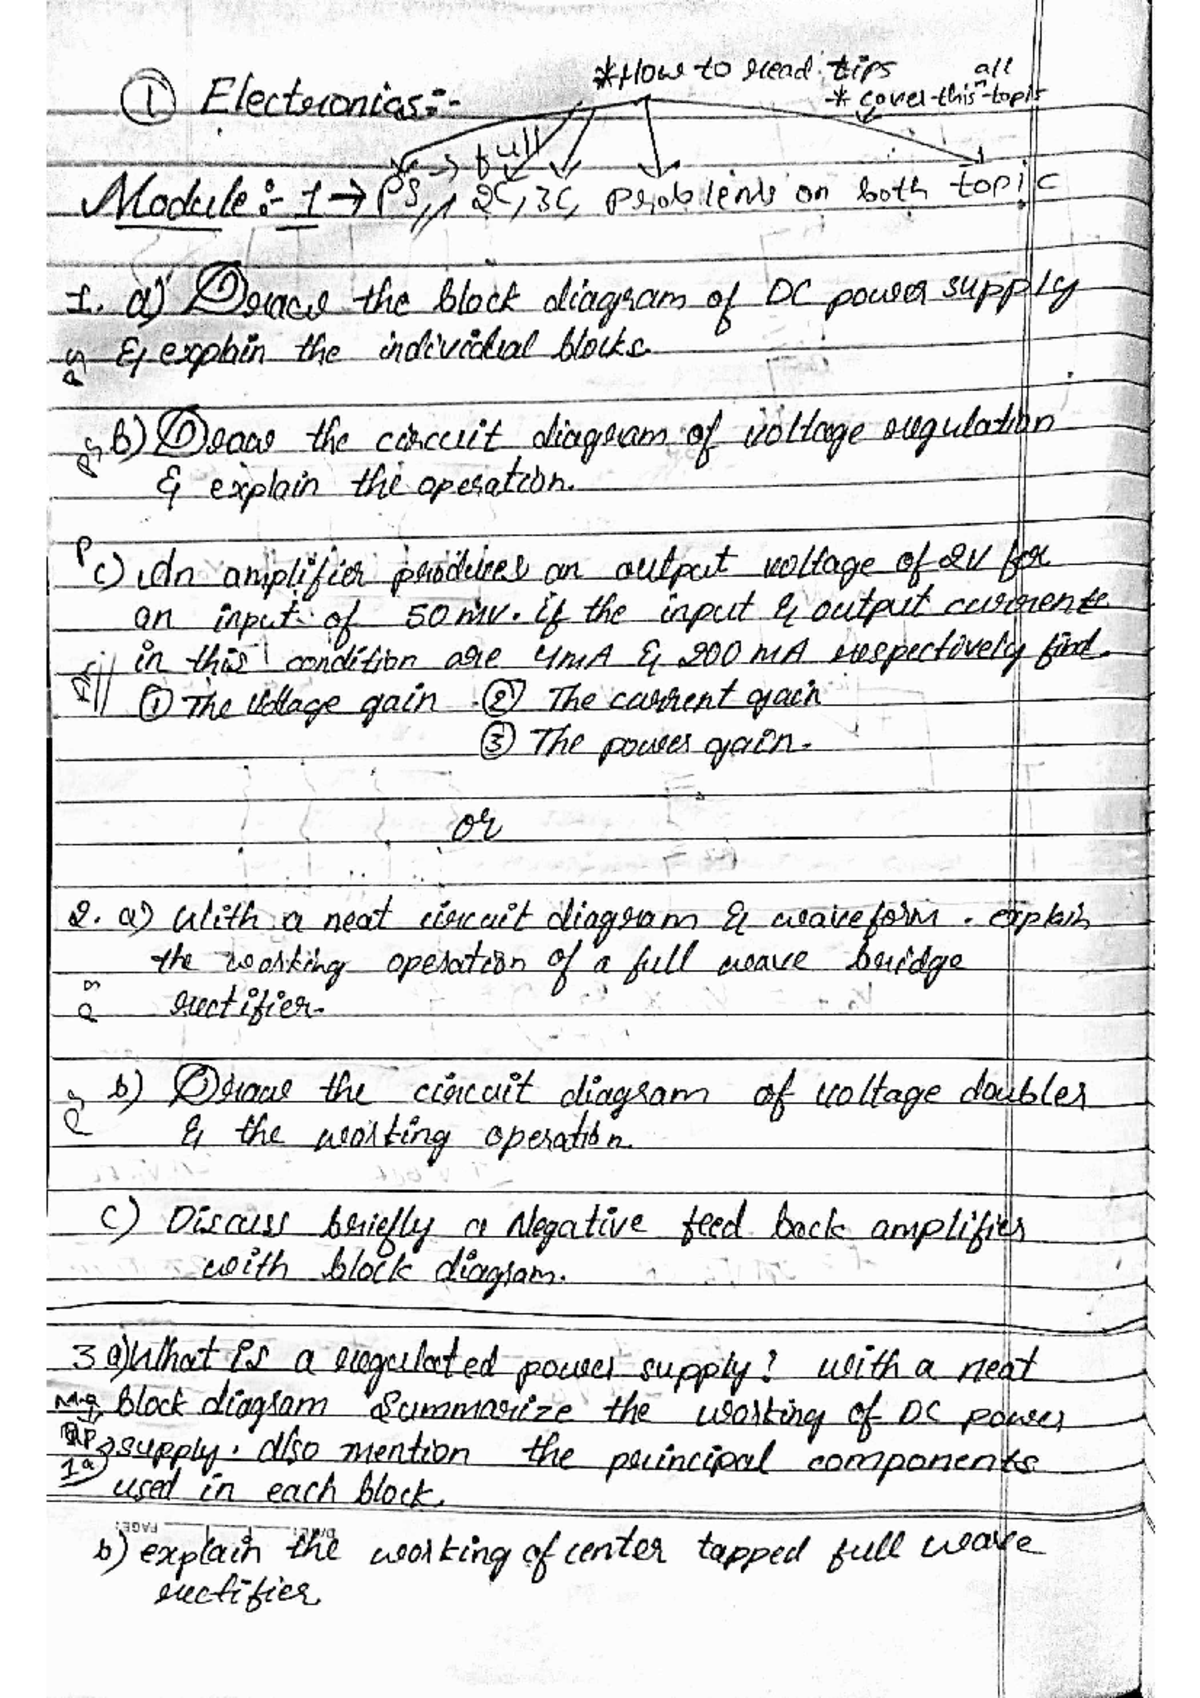 *How to read tips
all
① Electronics:-
* cover this topic
→ full
Module:- 1 → PS,, 2C, 3C, Problems on both topic
1. a) Draw the block diagram of DC power supply
& explain the individual blocks.
b) Draw the circuit diagram of voltage regulation
& explain the operation.
c) An amplifier produces an output voltage of 2V for
an input of 50mv. if the input & output currents
in this condition are 4mA & 200 mA respectively find.
① The voltage gain ② The current gain
③ The power gain.
or
2. a) With a neat circuit diagram & waveform. explain
the working operation of a full wave bridge
rectifier.
b) Draw the circuit diagram of voltage doubler
& the working operation.
c) Discuss briefly a Negative feed back amplifier
with block diagram.
3 a) What is a regulated power supply? with a neat
block diagram Summarize the working of DC power
supply. Also mention the principal components
1a)
used in each block.
b) explain the working of center tapped full wave
rectifier.